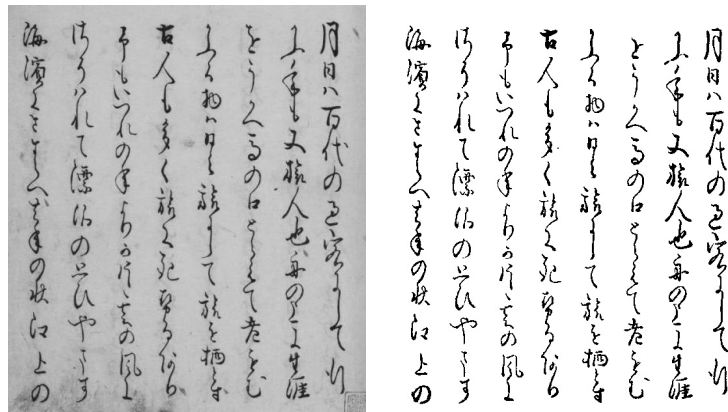 月日は百代の過客にして行
かふ年も又旅人也舟の上に生涯
をうかへ馬の口とらえて老をむ
かふる物は日々旅にして旅を栖とす
古人も多く旅に死せるあり
予もいつれの年よりか片雲の風に
さそはれて漂泊の思ひやます
海濱にさすらへ去年の秋江上の
月日は百代の過客にして行
かふ年も又旅人也舟の上に生涯
をうかへ馬の口とらえて老をむ
かふる物は日々旅にして旅を栖とす
古人も多く旅に死せるあり
予もいつれの年よりか片雲の風に
さそはれて漂泊の思ひやます
海濱にさすらへ去年の秋江上の